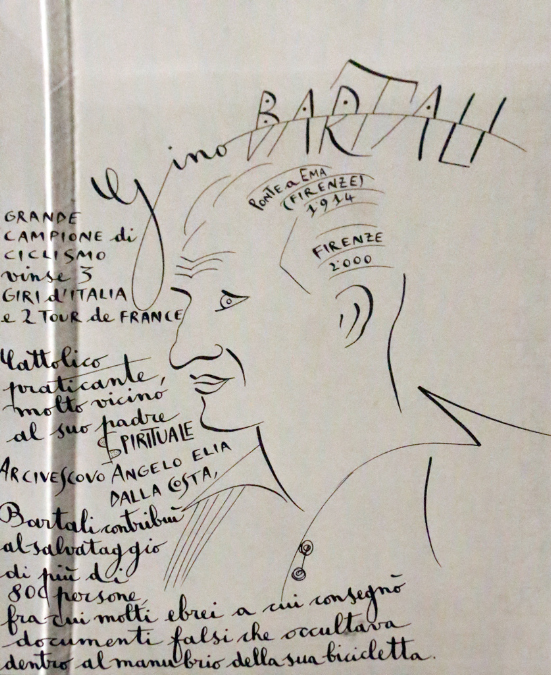 Gino BARTALI
PONTE a EMA
(FIRENZE)
1914
FIRENZE
2000
GRANDE
CAMPIONE di
CICLISMO
vinse 3
GIRI d'ITALIA
e 2 TOUR de FRANCE
Cattolico
praticante,
molto vicino
al suo padre
SPIRITUALE
ARCIVESCOVO ANGELO ELIA
DALLA COSTA,
Bartali contribuì
al salvataggio
di più di
800 persone,
fra cui molti ebrei a cui consegnò
documenti falsi che occultava
dentro al manubrio della sua bicicletta.